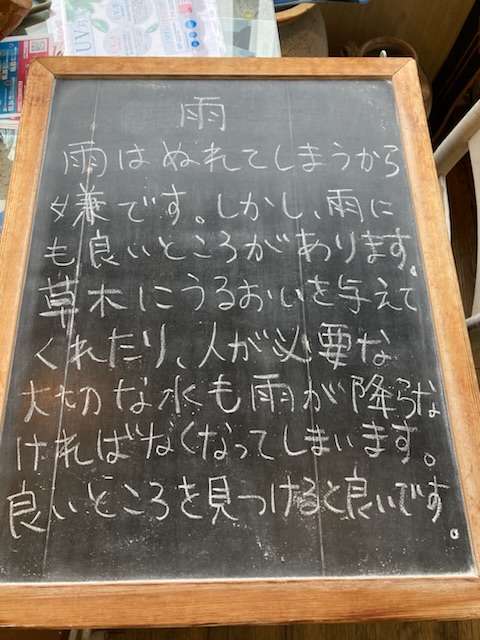 UV
雨
雨はぬれてしまうから
嫌です。しかし、雨に
も良いところがあります。
草木にうるおいを与えて
くれたり、人が必要な
大切な水も雨が降らな
ければなくなってしまいます。
良いところを見つけると良いです。